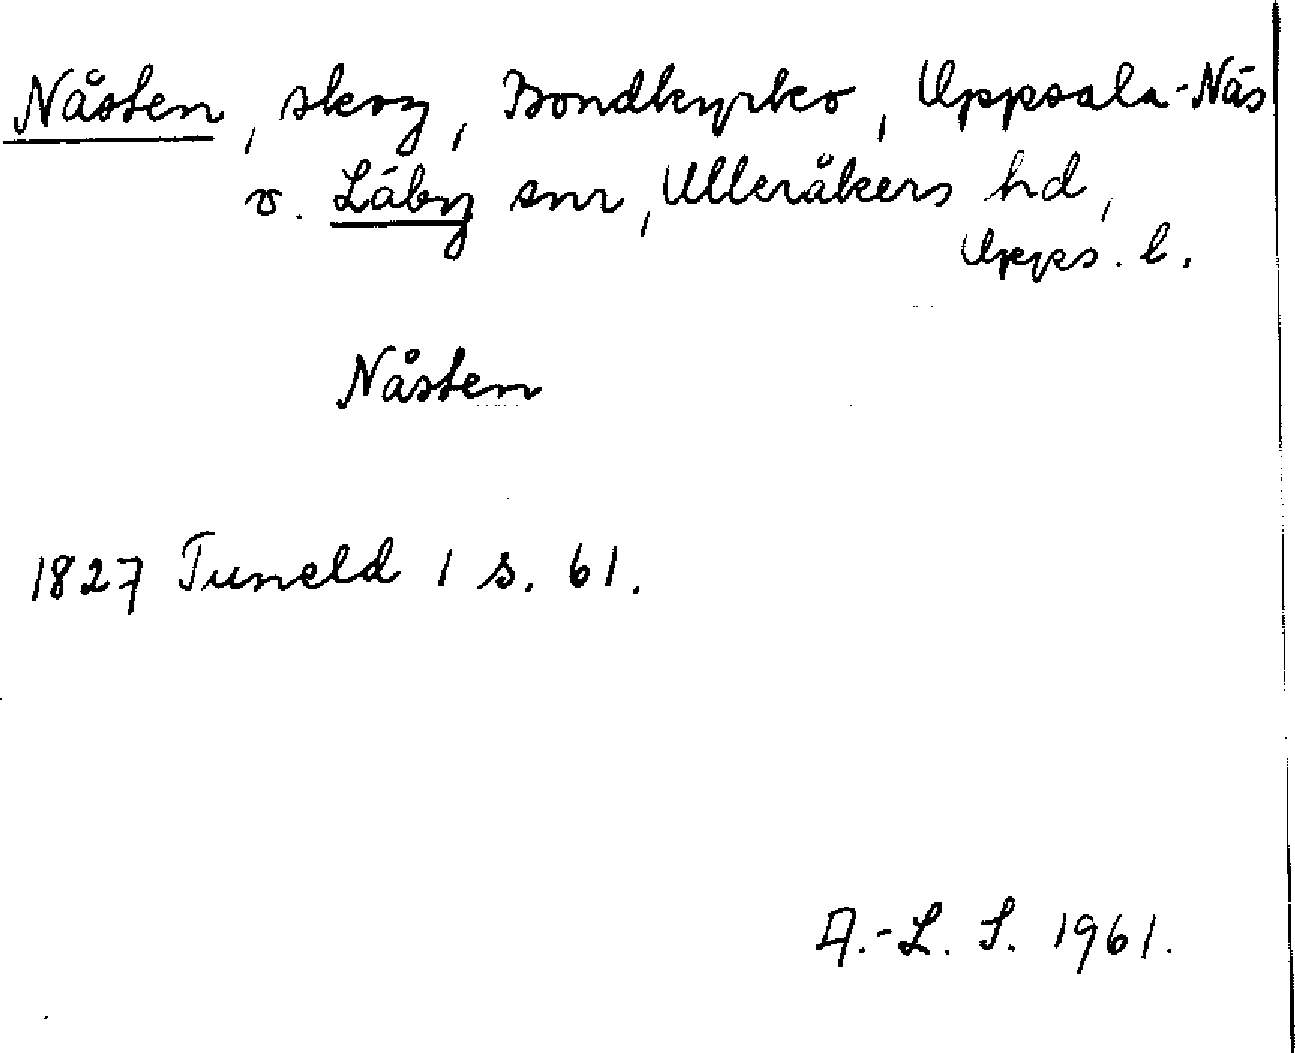 Nåsten, skog, Bondkyrko, Uppsala-Näs
o. Läby snr, Ulleråkers hd,
Upps. l.
Nåsten
1827 Tuneld 1 s. 61.
A.-L. S. 1961.